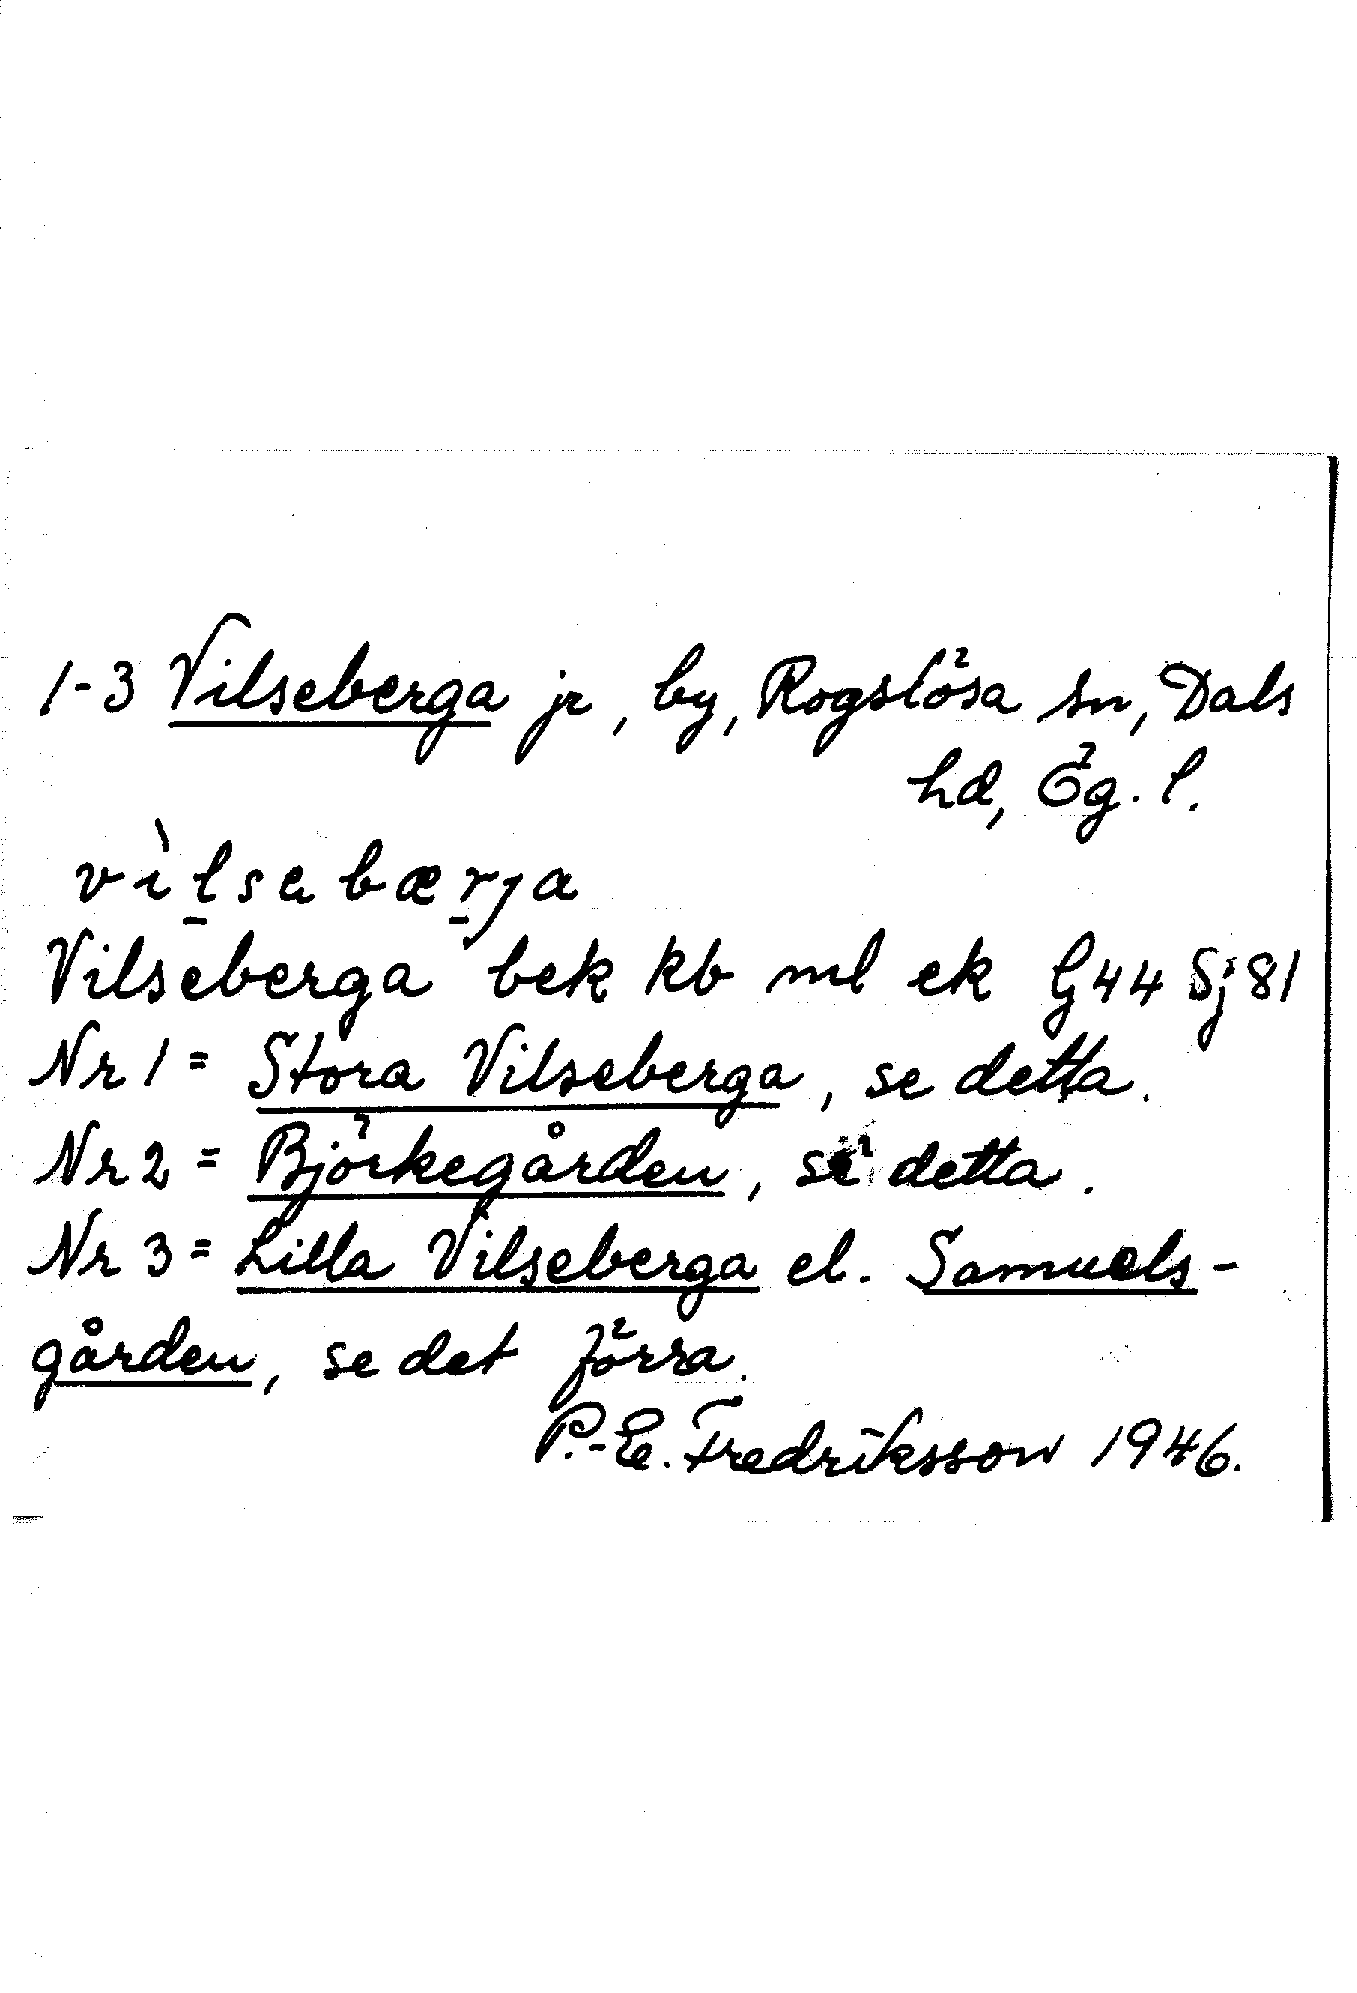 1-3 Vilseberga jr, by, Rogslösa sn, Dals
hd, Ög. l.
vìlsebærja
Vilseberga bek kb ml ek G44 Sj81
Nr 1 = Stora Vilseberga, se detta.
Nr 2 = Björkegården, se detta.
Nr 3 = Lilla Vilseberga el. Samuels-
gården, se det förra.
P.-E. Fredriksson 1946.